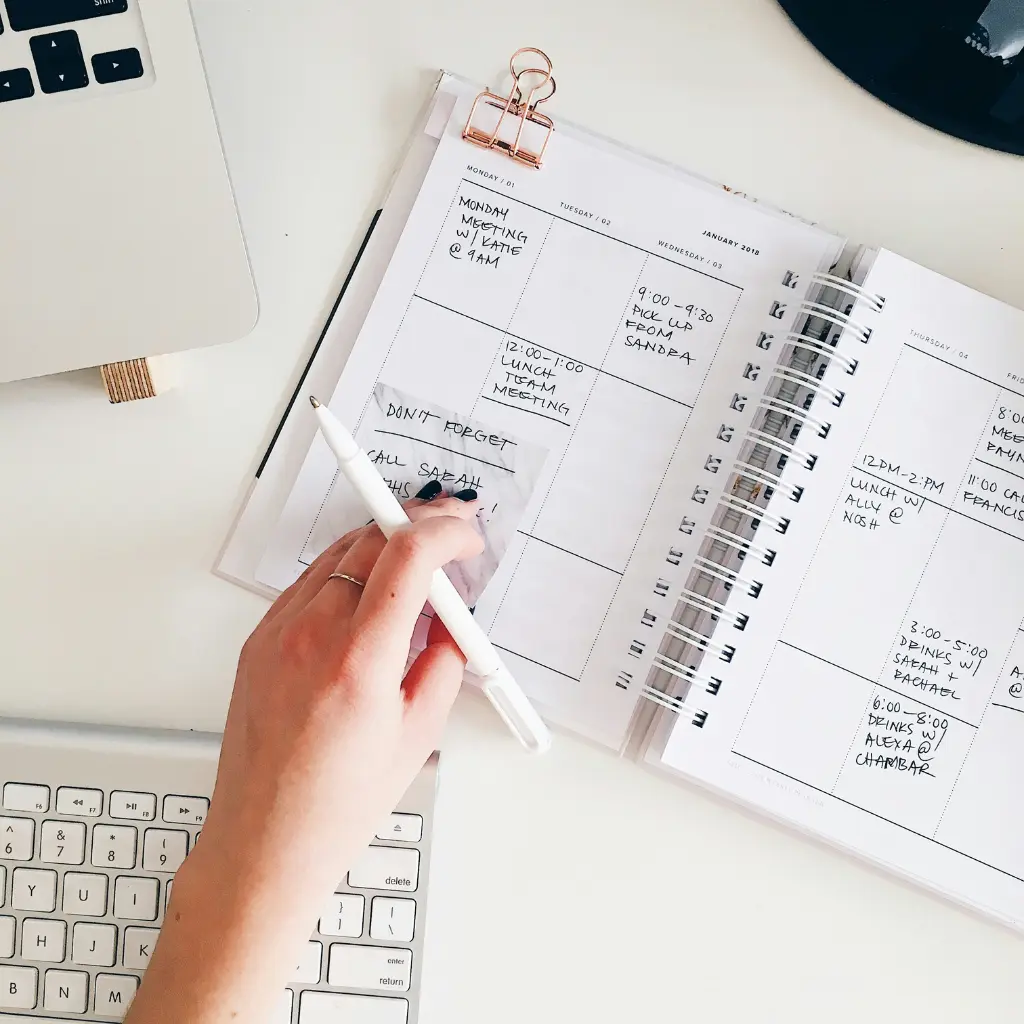 shift
JANUARY 2018
MONDAY / 01
MONDAY
MEETING
W/ KATIE
@ 9AM
DON'T FORGET
CALL SARAH
THIS
!
TUESDAY / 02
12:00-1:00
LUNCH
TEAM
MEETING
WEDNESDAY / 03
9:00-9:30
PICK UP
FROM
SANDRA
THURSDAY / 04
12PM-2:PM
LUNCH W/
ALLY @
NOSH
FRI
8:00
MEE
RAYN
11:00 CA
FRANCIS
3:00-5:00
DRINKS W/
SARAH +
RACHAEL
6:00-8:00
DRINKS W/
ALEXA @
CHAMBAR
A
@
F6 F7 F8 F9
^ 6 & 7 * 8 ( 9
delete
Y U I } ] | \
H J K enter return
B N M